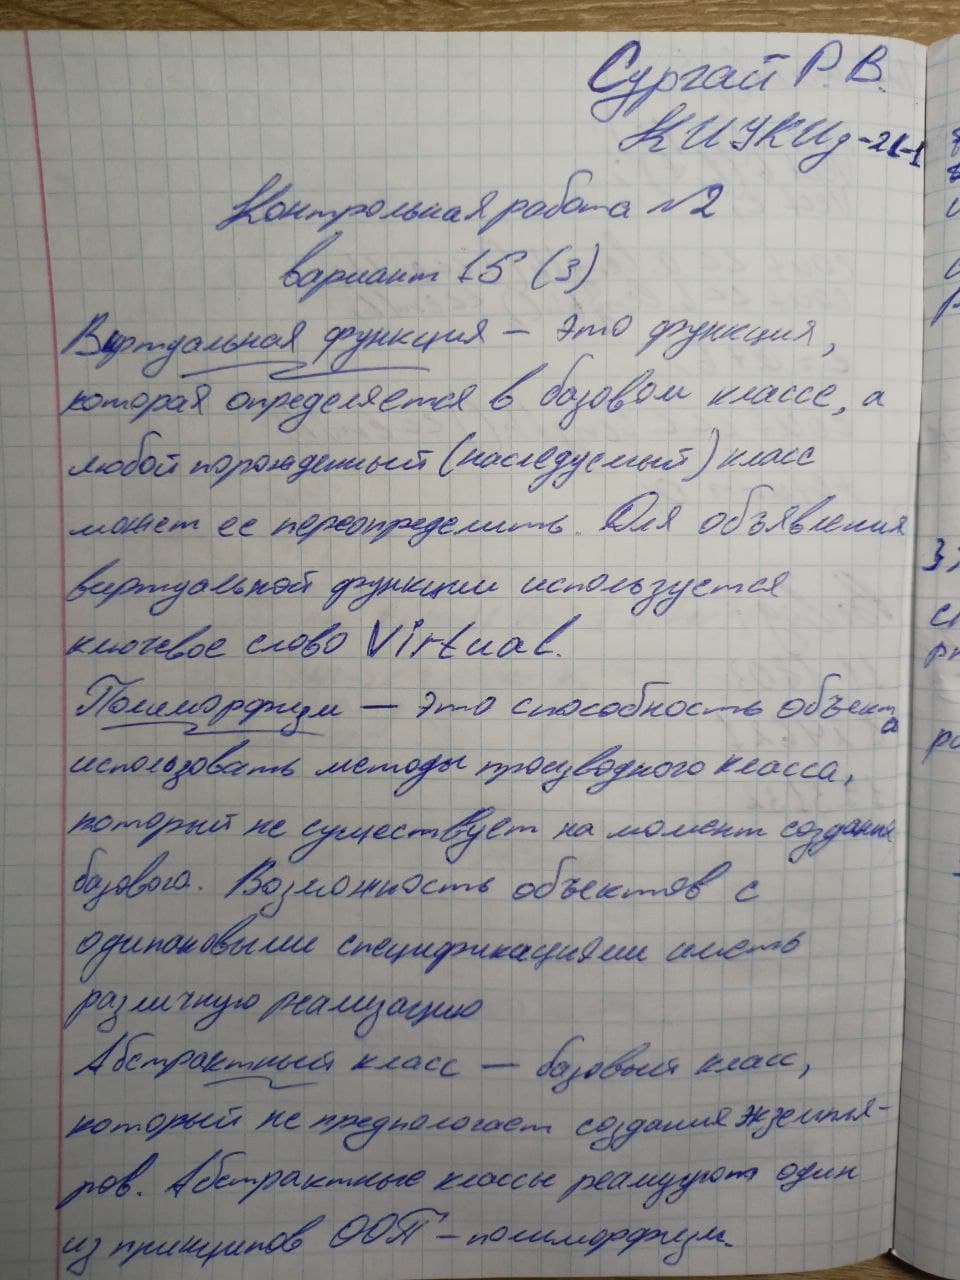 Сургай Р.В.
КИУКИу-21-1
Контрольная работа №2
вариант 15 (3)
Виртуальная функция — это функция,
которая определяется в базовом классе, а
любой порожденный (наследуемый) класс
может ее переопределить. Для объявления
виртуальной функции используется
ключевое слово Virtual.
Полиморфизм — это способность объекта
использовать методы производного класса,
который не существует на момент создания
базового. Возможность объектов с
одинаковыми спецификациями иметь
различную реализацию
Абстрактный класс — базовый класс,
который не предполагает создания экземпля-
ров. Абстрактные классы реализуют один
из принципов ООП — полиморфизм.